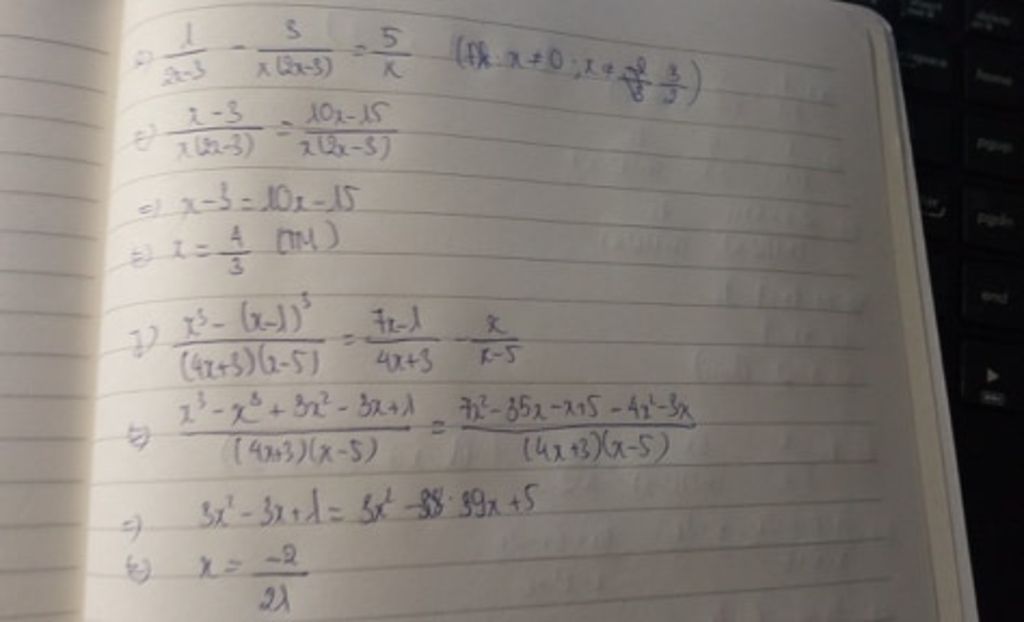 ⇔ 1/(2x-3) - 3/(x(2x-3)) = 5/x (ĐK: x ≠ 0; x ≠ 3/2)
⇔ (x-3)/(x(2x-3)) = (10x-15)/(x(2x-3))
⇒ x-3 = 10x-15
⇔ x = 4/3 (TM)
(x³ - (x-1)³)/((4x+3)(x-5)) = (7x-1)/(4x+3) - x/(x-5)
⇔ (x³ - x³ + 3x² - 3x + 1)/((4x+3)(x-5)) = (7x² - 35x - x + 5 - 4x² - 3x)/((4x+3)(x-5))
⇒ 3x² - 3x + 1 = 3x² - 39x + 5
⇔ x = -2/21